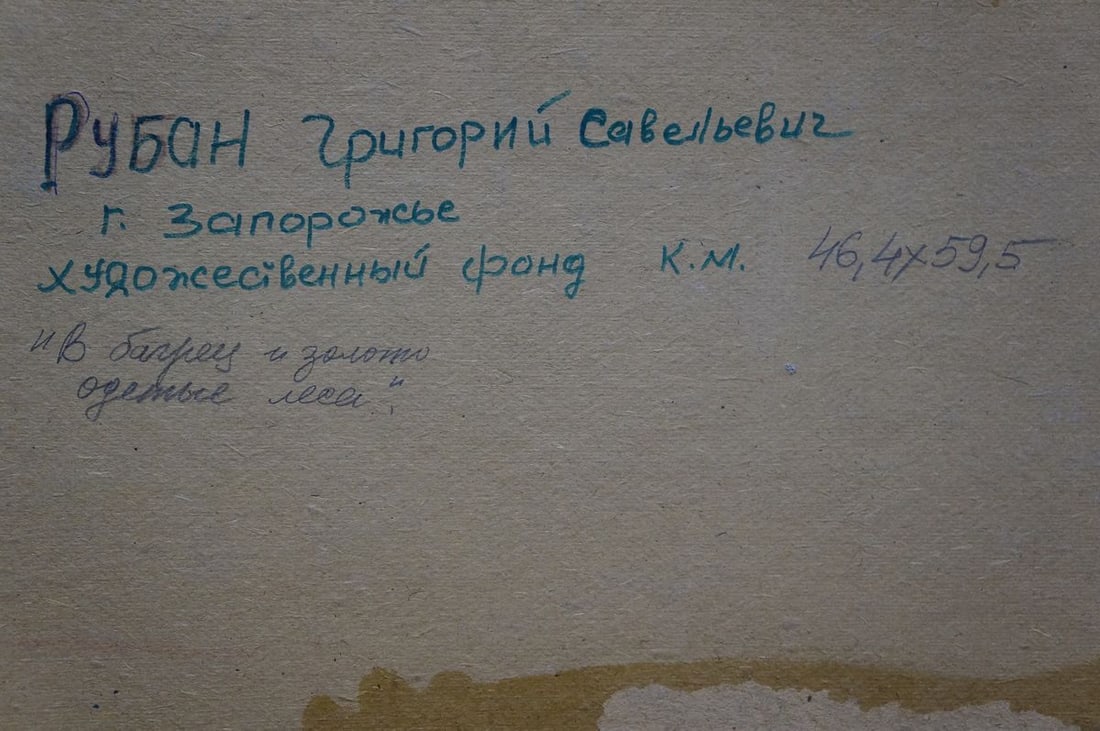 РУБАН Григорий Савельевич
г. Запорожье
художественный фонд К.М. 46,4х59,5
"В багрец и золото
одетые леса".